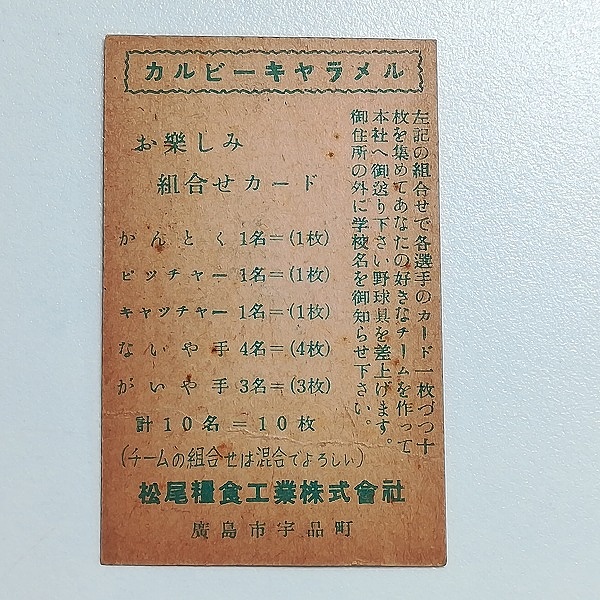 カルビーキャラメル
お樂しみ
組合せカード
かんとく 1名＝(1枚)
ピツチャー 1名＝(1枚)
キャツチャー 1名＝(1枚)
ないや手 4名＝(4枚)
がいや手 3名＝(3枚)
計10名＝10枚
(チームの組合せは混合でよろしい)
左記の組合せで各選手のカード一枚づつ十
枚を集めてあなたの好きなチームを作って
本社へ御送り下さい野球具を差上げます。
御住所の外に学校名を御知らせ下さい。
松尾糧食工業株式會社
廣島市宇品町